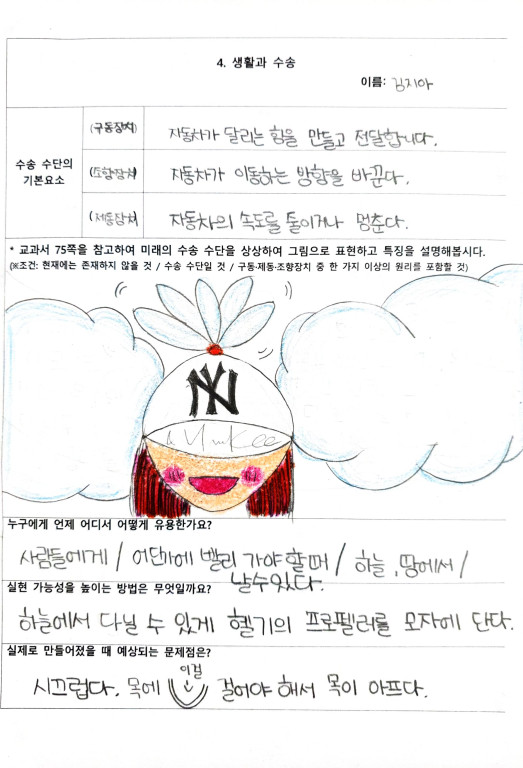 4. 생활과 수송
이름: 김지아
수송 수단의
기본요소
(구동장치) 자동차가 달리는 힘을 만들고 전달합니다.
(조향장치) 자동차가 이동하는 방향을 바꾼다.
(제동장치 자동차의 속도를 줄이거나 멈춘다.
* 교과서 75쪽을 참고하여 미래의 수송 수단을 상상하여 그림으로 표현하고 특징을 설명해봅시다.
(※조건: 현재에는 존재하지 않을 것 / 수송 수단일 것 / 구동·제동·조향장치 중 한 가지 이상의 원리를 포함할 것)
NY
누구에게 언제 어디서 어떻게 유용한가요?
사람들에게 / 어딘가에 빨리 가야 할 때 / 하늘, 땅에서 /
날 수 있다.
실현 가능성을 높이는 방법은 무엇일까요?
하늘에서 다닐 수 있게 헬기의 프로펠러를 모자에 단다.
실제로 만들어졌을 때 예상되는 문제점은?
이걸
시끄럽다. 목에 걸어야 해서 목이 아프다.